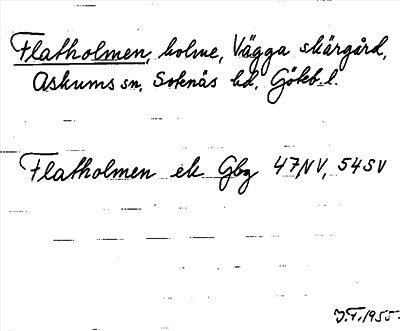 Flatholmen, holme, Vägga skärgård,
Askums sn, Sotenäs hd, Götebl.
Flatholmen ek Gbg 47NV, 54SV
J.T. 1955.